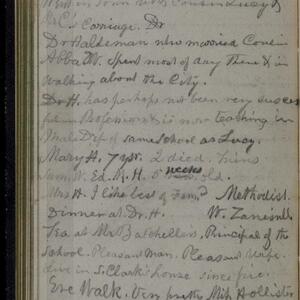 Went in town with Cousin Lucy &
Carriage. Dr
Dr Haldeman who married Cousin
Abba W. Spent most of day there & in
walking about the City.
Dr H. has perhaps not been very success
in Profession & is now teaching in
Male Dep of same School as Lucy.
Mary H. 7 yrs. 2 died. twins
Sam W. Ed. R. H. 5 weeks old.
Mrs H. I like best of Fam. Methodist.
Dinner at Dr. H. W. Zanesville
Tea at Mr Batchellers, Principal of the
School. Pleasant man. Pleasant wife.
Live in S. Clark's house since fire.
Eve Walk. Very pretty Miss Hollister